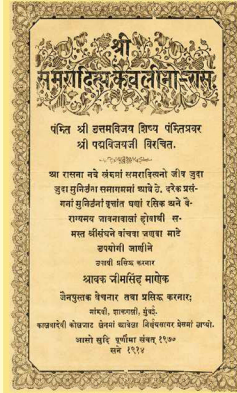 श्री
समरादित्य केवलीनो रास.
पंमित श्री उत्तमविजय शिष्य पंमितप्रवर
श्री पद्मविजयजी विरचित.
आ रासना नवे खंममां समरादित्यनो जीव जुदा
जुदा मुनिउंना समागममां आवे ठे. दरेक प्रसं-
गनां मुनिउंनां वृत्तांत घणां रसिक अने वै-
राग्यमय नावनावालां होवाथी स-
मस्त श्रीसंघने वांचवा जणवा माटे
उपयोगी जाणीने
उपावी प्रसिद्ध करनार
श्रावक जीमसिंह माणेक
जैनपुस्तक वेचनार तथा प्रसिद्ध करनार;
मांमवी, शाकगल्ली, मुंबई.
कालबादेवी कोलनाट लेनमां आवेला निर्णयसागर प्रेसमां ठाप्यो.
आसो सुदि पूर्णीमा संवत् १९७०
सने १९१४